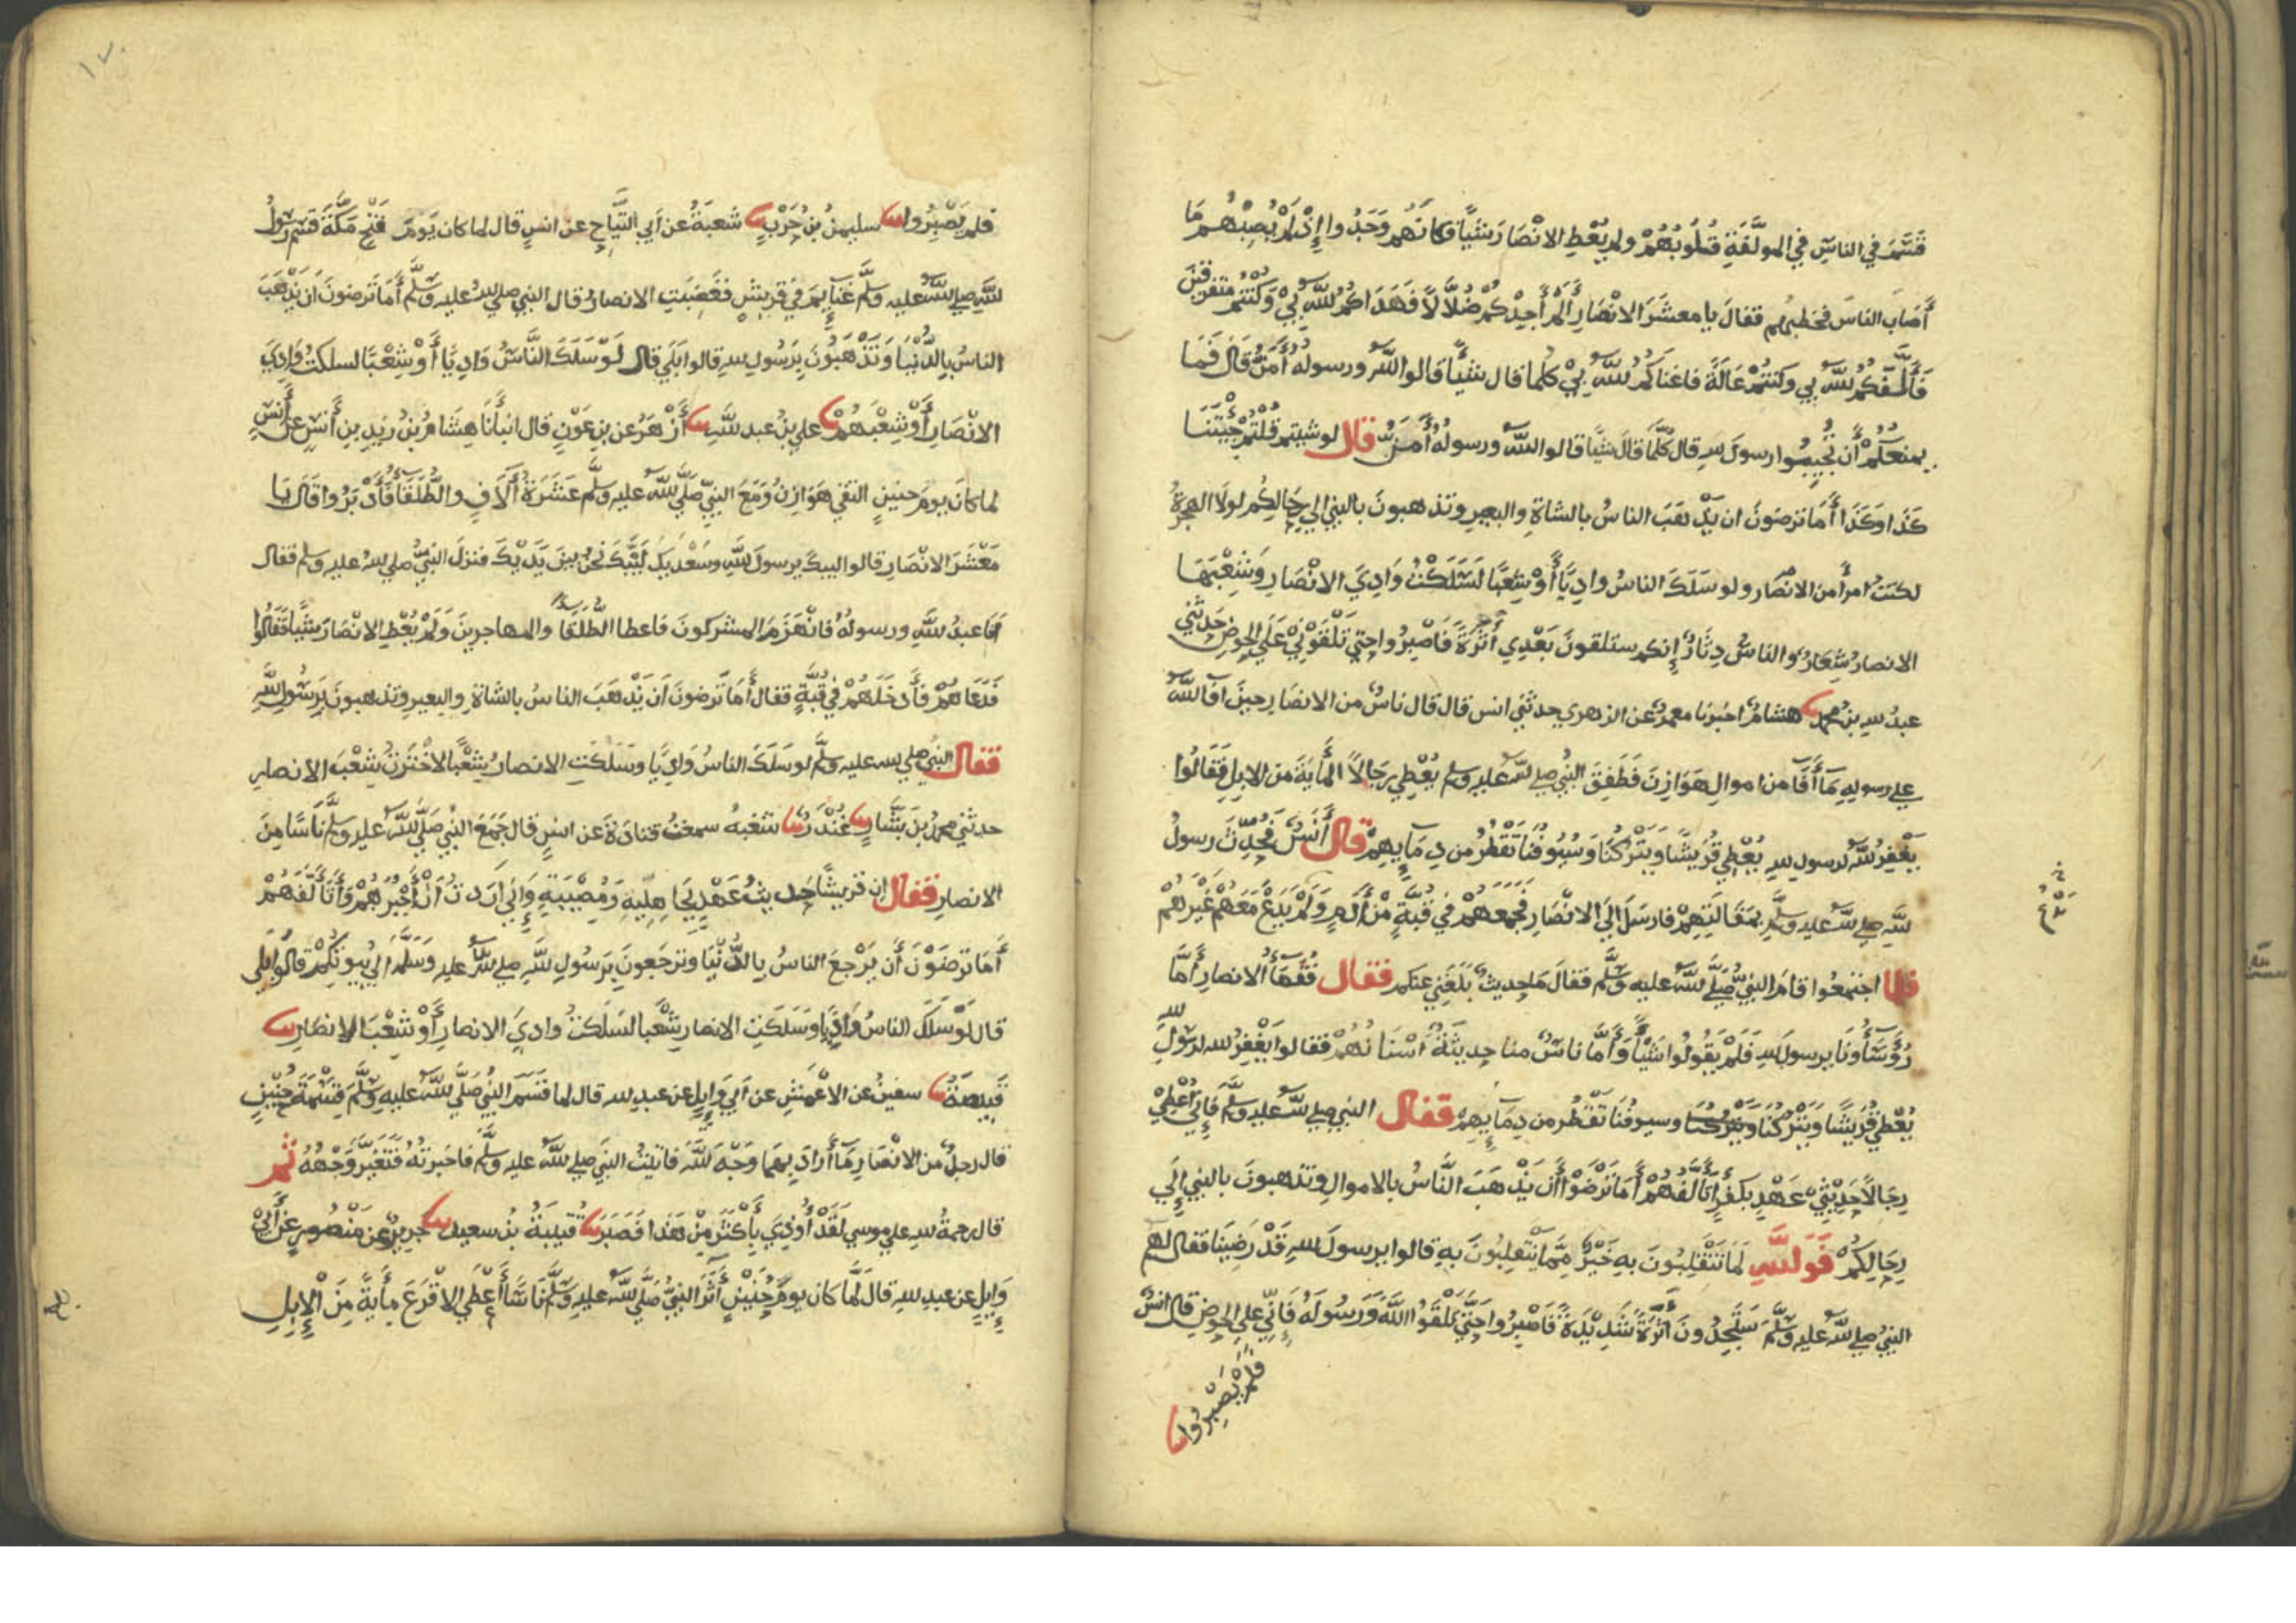 قَسَمَ في الناسِ في المولَّفَةِ قُلُوبُهُمْ ولم يُعْطِ الانْصَارَ شَيْأً فكانَّهُم وَجَدُوا إِذْ لَمْ يُصِبْهُم مَا
أَصَابَ الناسَ فخطبهم فقالَ يا معشَرَ الانْصَارِ أَلَمْ أَجِدْكُمْ ضُلاَّلاً فَهَدَاكُمُ اللهُ بِيْ وَكُنْتُمْ متفرقين
فَأَلَّفَكُمُ اللهُ بي وكنتمْ عَالَةً فاغناكُمُ اللهُ بِيْ كلما قال شيأً قالوا اللهُ ورسولهُ أَمَنُّ قَالَ فَمَا
يمنعكُمْ أَن تُجِيبُوا رسولَ لله قال كُلَّمَا قالَ شيأً قالوا اللهُ ورسولُهُ أَمَنُّ قال لو شيتم قُلْتُمْ جِئْتَنَا
كَذَا وكَذَا أَمَا ترضَونَ ان يَذْهَبَ الناسُ بالشاةِ والبعيرِ وتذهبونَ بالنبيِ الي رِحَالِكُم لولَا الهجرةُ
لكنتُ امرأً من الانصَارِ ولو سَلَكَ الناسُ وادِيًا أَوْ شِعْبًا لَسَلَكْتُ وَادِيَ الانْصَارِ وَشِعْبَهَا
الانصارُ شِعَارٌ والناسُ دِثَارٌ إِنكم ستلقونَ بَعْدِي أَثَرَةً فَاصْبِرُوا حتي تَلْقَوْنِيْ عَلَي الحوضِ حدثني
عبدُ للهِ بنُ محمدٍ نا هشامٌ اخبرنا معمرٌ عن الزهري حدثني انس قال قال ناسٌ من الانصَارِ حِينَ افَا اللهُ
علي رسولِهِ مَا أَفَا من اموالِ هَوَازِنَ فَطَفِقَ النبيُ صلي للهُ عليه وسلم يُعْطِي رِجَالاً المأيَةَ من الابلِ فَقَالُوا
يَغْفِرُ اللهُ لرسول للهِ يُعْطِي قُرَيْشًا وَيَتْرُكُنَا وَسُيُوفُنَا تَقْطُرُ من دِمَايِهِمْ قال أَنَسٌ فَحُدِّثَ رسولُ
للهِ صلي اللهُ عليه وسلم بِمَقَالَتِهِمْ فارسَلَ الي الانْصَارِ فَجَمَعَهُمْ في قُبَّةٍ مِنْ أَدَمٍ وَلَمْ يَدَعْ مَعَهُمْ غَيْرَهُمْ
فلما اجتمعُوا قامَ النبيُّ صَلَّي للهُ عليه وسلَّم فقالَ مَا حديثٌ بَلَغَنِي عنكم فقال فُقَهَاءُ الانصارِ أَمَّا
رُؤَسَاؤنَا يرسولَ للهِ فَلَمْ يَقُولُوا شَيْأً وَأَمَّا ناسٌ منا حديثَةٌ أَسْنَانُهُمْ فقالوا يَغْفِرُ للهُ لرسولِ لله
يُعْطِي قُرَيْشًا وَيَتْرُكُنَا وَيَتْرُكُنَا وسيوفُنَا تَقْطُر من دِمَايِهِمْ فقال النبي صلي للهُ عليه وسلم فَإِنِّي أُعْطِيْ
رِجَالاً حَدِيْثِيْ عَهْدٍ بِكُفْرٍ أَتَأَلَّفُهُمْ أَمَا تَرْضَوْا أَن يَذْهَبَ النَّاسُ بالاموالِ وتذهبونَ بالنبيِ إِلَي
رِحَالِكُمْ فَوَللَّهِ لَمَا تَنْقَلِبُونَ بهِ خَيْرٌ مِمَّا يَنْقَلِبُونَ بهِ قالوا يرسولَ للهِ قَدْ رَضِيَنا فقال لهم
النبيُ صلي للهُ عليه وسلَّم سَتَجِدُونَ أَثَرَةً شَدِيْدَةً فَاصْبِرُوا حَتَّي تَلْقَوُا اللهَ وَرَسُولَهُ فَإِنِّي علي الحوضِ قال انسٌ
فلم يَصْبِرُوا نا
فلم يَصْبِرُوا نا سليمنُ بنُ حَرْبٍ نا شعبَةُ عن أَبي التَّيَّاحِ عن انسٍ قال لما كان يَومُ فَتْحِ مَكَّةَ قَسَمَ رسولُ
للهِ صلي اللهُ عليه وسلَّم غَنَايِمَ في قريشٍ فغَضِبَتِ الانصارُ قال النبي صلي للهُ عليه وسلَّم أَمَا تَرضونَ ان يذهَبَ
الناسُ بِالدُّنْيَا وَتَذْهَبُونَ بِرَسُولِ للهِ قالوا بَلَي قال لَوْ سَلَكَ النَّاسُ وَادِيًا أَوْ شِعْبًا لسلكتُ وَادِيَ
الانْصَارِ أَوْ شِعْبَهُمْ نا علي بنُ عبد للَّهِ نا أَزْهَرُ عن بنِ عَوْنٍ قال انبأَنَا هِشَامُ بنُ زيدِ بنِ أَنَسٍ عن أَنَسٍ
لما كَانَ يومُ حنينٍ التقي هَوَازِنُ وَمَعَ النبيِّ صَلَّي للهُ عليه وسلَّم عَشَرَةُ آلَافٍ والطُّلَقَاُ فَأَدْبَرُوا قَالَ يَا
مَعْشَرَ الانْصَارِ قالوا لبيكَ يرسولَ للَّهِ وَسَعْدَيكَ لَبَّيْكَ نحنُ بينَ يَدَيْكَ فنزلَ النبيُّ صلي للهُ عليه وسلم فقال
أَنَا عبدُ للَّهِ ورسولُهُ فانْهَزَمَ المشركونَ فاعطا الطُّلَقَا والمهاجرينَ وَلَمْ يُعْطِ الانْصَارَ شَيْأً فَقَالُوا
فَدَعَاهُمْ فَأَدخَلَهُمْ في قُبَّةٍ فقال أَمَا تَرضونَ أَن يَذْهَبَ الناسُ بالشاةِ والبعيرِ وتذهبونَ بِرَسُولِ للَّهِ
فقال النبي صلي لله عليه وسلَّم لو سَلَكَ الناسُ وَادِيًا وسَلَكَتِ الانصارُ شِعْبًا لاخْتَرْتُ شِعْبَ الانصارِ
حدثني محمدُ بنُ بَشَّارٍ نا غُنْدَرٌ نا شعبَةُ سمعتُ قتادَةَ عن انسٍ قال جَمَعَ النبيُ صَلَّي للهُ عليه وسلَّم نَاسًا مِنَ
الانصارِ فقال إِن قريشًا حديثُ عَهْدٍ بِجَاهِلِيةٍ وَمُصِيْبَةٍ وَإِنِّي أَرَدتُ أَنْ أَجْبُرَهُمْ وَأَتَأَلَّفَهُمْ
أَمَا تَرضَوْنَ أَن يَرْجِعَ الناسُ بِالدُّنْيَا وترجعُونَ بِرَسُولِ للَّهِ صلي للهُ عليه وَسَلَّمَ إِلي بُيُوتِكُمْ قالُوا بَلَي
قال لَوْ سَلَكَ الناسُ وَادِيًا وَسَلَكَتِ الانصارُ شِعْبًا لسَلَكتُ وادِيَ الانصارِ أَوْ شِعْبَ الانصَارِ نا
قَبِيصَةُ نا سفينُ عن الاعْمَشِ عن أَبي وَايِلٍ عن عبدِ لله قال لما قَسَمَ النبيُ صَلَّي للهُ عليه وسلَّم قِسْمَةَ حُنَيْنٍ
قال رجلٌ من الانْصَارِ مَا أَرادَ بِهَا وَجْهَ للهِ فاتيتُ النبيَ صلي للهُ عليه وسلَّم فاخبرتُهُ فَتَغَيَّرَ وَجْهُهُ ثم
قال رحمةُ للهِ علي موسي لَقَدْ أُوذِيَ بِأَكْثَرَ مِنْ هَذَا فَصَبَرَ نا قتيبَةُ بنُ سعيدٍ نا جريرٌ عن مَنْصُورٍ عن أَبيْ
وَايِلٍ عن عبدِ للهِ قالَ لَمَّا كان يومُ حُنَيْنٍ أَثَرَ النبيُّ صَلَّي للهُ عليه وسلَّم نَاسًا أَعْطَي الاقْرَعَ مِأيَةً مِنَ الْإِبِلِ